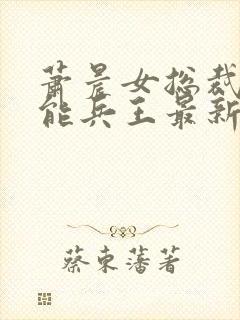 萧晨女总裁
能兵王最新
蔡东藩著